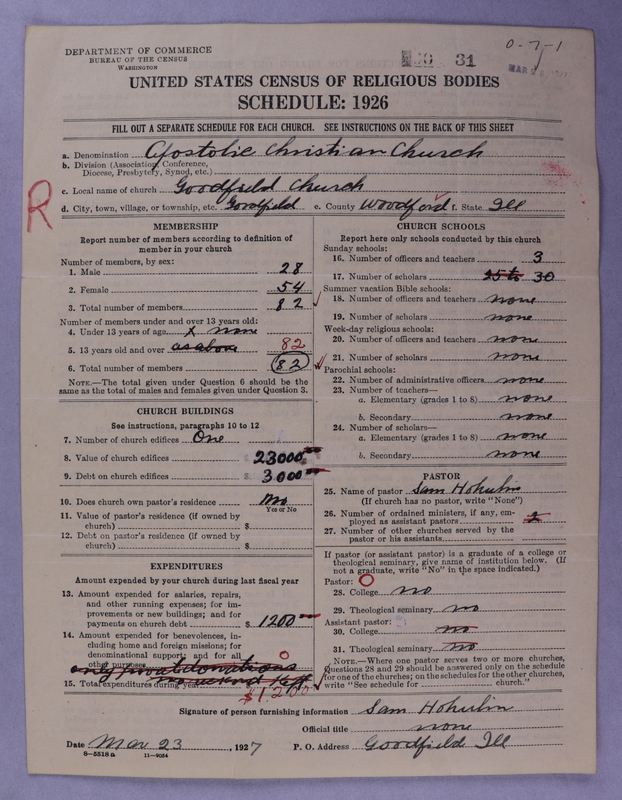 DEPARTMENT OF COMMERCE
BUREAU OF THE CENSUS
WASHINGTON
31
0-7-1
UNITED STATES CENSUS OF RELIGIOUS BODIES
SCHEDULE: 1926
FILL OUT A SEPARATE SCHEDULE FOR EACH CHURCH. SEE INSTRUCTIONS ON THE BACK OF THIS SHEET
a. Denomination Apostolic Christian Church
b. Division (Association, Conference, Diocese, Presbytery, Synod, etc.)
c. Local name of church Goodfield Church
R
d. City, town, village, or township, etc. Goodfield e. County Woodford f. State Ill
MEMBERSHIP
Report number of members according to definition of
member in your church
Number of members, by sex:
1. Male 28
2. Female 54
3. Total number of members 82
Number of members under and over 13 years old:
4. Under 13 years of age x none
5. 13 years old and over as above 82
6. Total number of members 82
NOTE.—The total given under Question 6 should be the
same as the total of males and females given under Question 3.
CHURCH BUILDINGS
See instructions, paragraphs 10 to 12
7. Number of church edifices One
8. Value of church edifices $ 23000
9. Debt on church edifices $ 3000
10. Does church own pastor's residence no
Yes or No
11. Value of pastor's residence (if owned by
church) $
12. Debt on pastor's residence (if owned by
church) $
EXPENDITURES
Amount expended by your church during last fiscal year
13. Amount expended for salaries, repairs,
and other running expenses; for im-
provements or new buildings; and for
payments on church debt $ 1200
14. Amount expended for benevolences, in-
cluding home and foreign missions; for
denominational support; and for all
other purposes 0
only privat donations
no record kept
15. Total expenditures during year $1,200
CHURCH SCHOOLS
Report here only schools conducted by this church
Sunday schools:
16. Number of officers and teachers 3
17. Number of scholars 25 to 30
Summer vacation Bible schools:
18. Number of officers and teachers none
19. Number of scholars none
Week-day religious schools:
20. Number of officers and teachers none
21. Number of scholars none
Parochial schools:
22. Number of administrative officers none
23. Number of teachers—
a. Elementary (grades 1 to 8) none
b. Secondary none
24. Number of scholars—
a. Elementary (grades 1 to 8) none
b. Secondary none
PASTOR
25. Name of pastor Sam Hohulin
(If church has no pastor, write "None")
26. Number of ordained ministers, if any, em-
ployed as assistant pastors 2
27. Number of other churches served by the
pastor or his assistants
If pastor (or assistant pastor) is a graduate of a college or
theological seminary, give name of institution below. (If
not a graduate, write "No" in the space indicated.)
Pastor: O
28. College no
29. Theological seminary no
Assistant pastor:
30. College no
31. Theological seminary no
NOTE.—Where one pastor serves two or more churches,
Questions 28 and 29 should be answered only on the schedule
for one of the churches; on the schedules for the other churches,
write "See schedule for church."
Signature of person furnishing information Sam Hohulin
Official title none
Date Mar 23, 1927 P. O. Address Goodfield Ill
8—5518a 11—9054